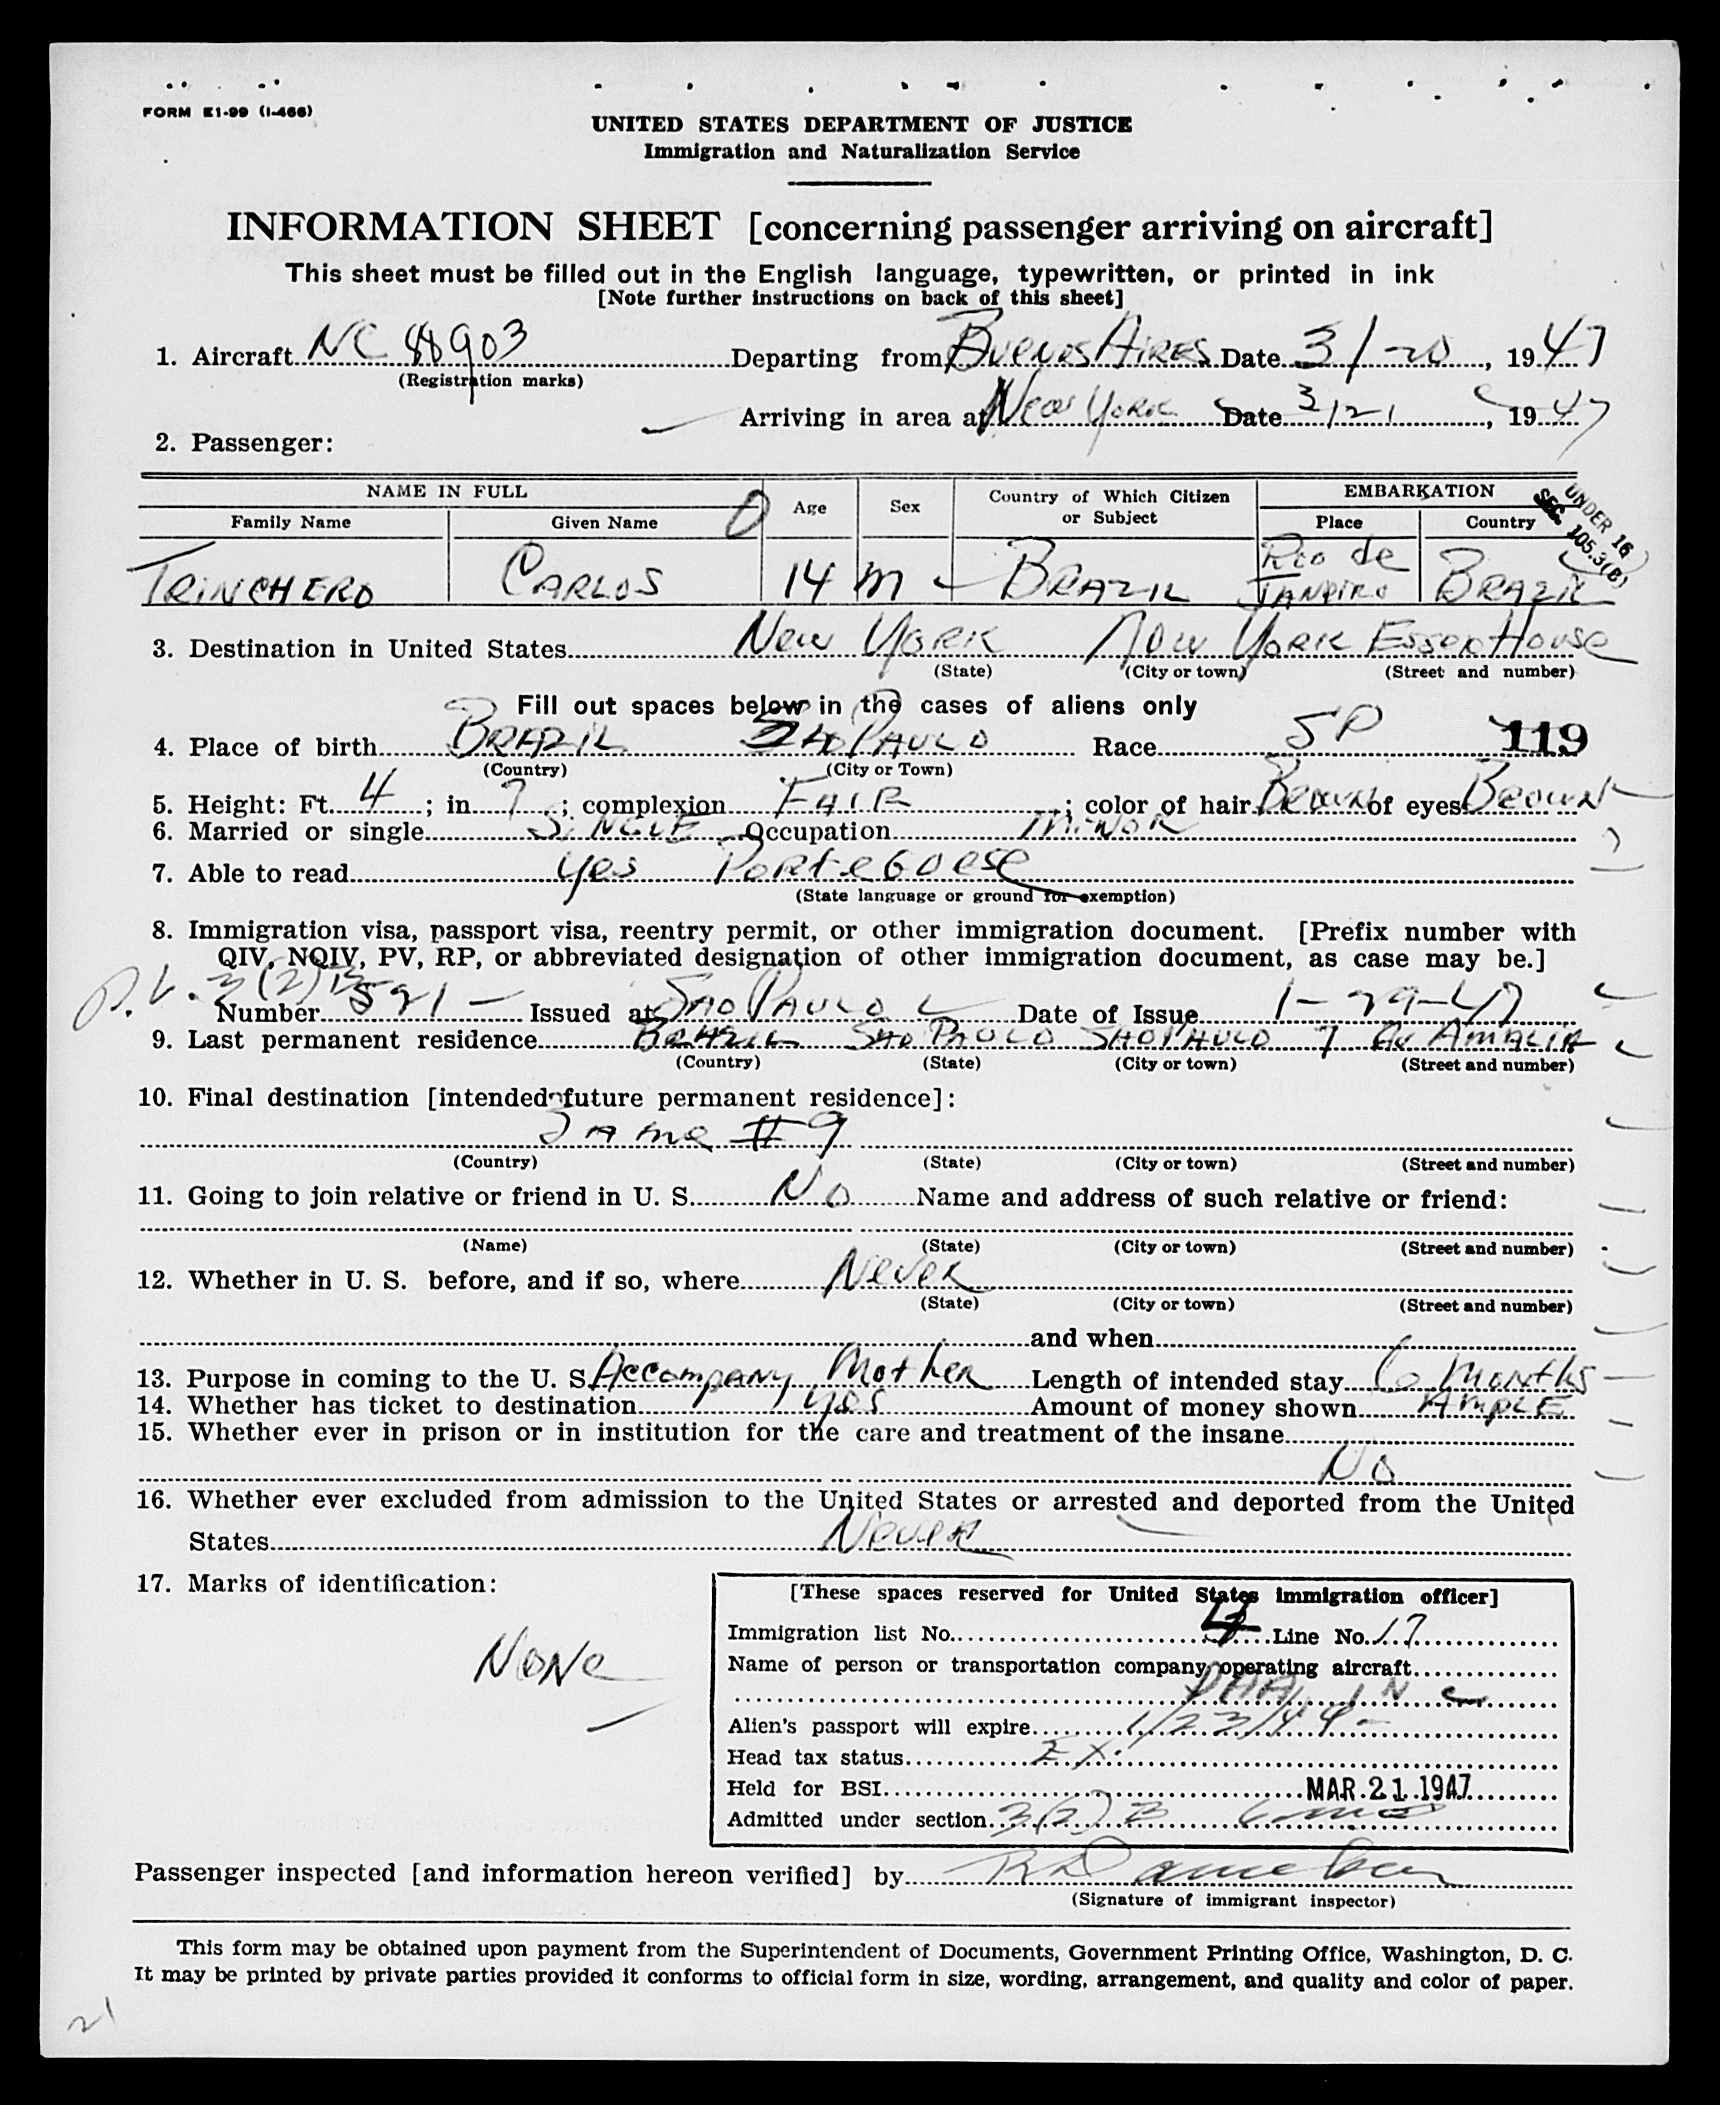 FORM E1-99 (I-466)
UNITED STATES DEPARTMENT OF JUSTICE
Immigration and Naturalization Service
INFORMATION SHEET [concerning passenger arriving on aircraft]
This sheet must be filled out in the English language, typewritten, or printed in ink
[Note further instructions on back of this sheet]
1. Aircraft NC 88903 Departing from BUENOS AIRES Date 3/20, 1947
(Registration marks)
Arriving in area at New York Date 3/21, 1947
2. Passenger:
NAME IN FULL Age Sex Country of Which Citizen or Subject EMBARKATION
Family Name Given Name Place Country
UNDER 16
SEC. 105.3(B)
TRINCHERO CARLOS 14 M BRAZIL Rio de JANEIRO BRAZIL
3. Destination in United States New York New York Essex House
(State) (City or town) (Street and number)
Fill out spaces below in the cases of aliens only
4. Place of birth BRAZIL SAO PAULO Race SP 119
(Country) (City or Town)
5. Height: Ft. 4; in. 7; complexion FAIR; color of hair Brown of eyes Brown
6. Married or single SINGLE Occupation MINOR
7. Able to read yes PORTEGOESE
(State language or ground for exemption)
8. Immigration visa, passport visa, reentry permit, or other immigration document. [Prefix number with
QIV, NQIV, PV, RP, or abbreviated designation of other immigration document, as case may be.]
P.V. 3(2)B
Number 521 Issued at SAO PAULO Date of Issue 1-29-47
9. Last permanent residence BRAZIL SAO PAULO SAO PAULO 7 Av AMALIA
(Country) (State) (City or town) (Street and number)
10. Final destination [intended future permanent residence]:
Same #9
(Country) (State) (City or town) (Street and number)
11. Going to join relative or friend in U. S. No Name and address of such relative or friend:
(Name) (State) (City or town) (Street and number)
12. Whether in U. S. before, and if so, where Never
(State) (City or town) (Street and number)
and when
13. Purpose in coming to the U. S. Accompany Mother Length of intended stay 6 Months
14. Whether has ticket to destination yes Amount of money shown AMPLE
15. Whether ever in prison or in institution for the care and treatment of the insane
No
16. Whether ever excluded from admission to the United States or arrested and deported from the United
States Never
17. Marks of identification:
None
[These spaces reserved for United States immigration officer]
Immigration list No. 4 Line No. 17
Name of person or transportation company operating aircraft
PAA IN C
Alien's passport will expire 1/23/49
Head tax status EX.
Held for BSI MAR 21 1947
Admitted under section 3(2)B 6 mos
Passenger inspected [and information hereon verified] by
(Signature of immigrant inspector)
This form may be obtained upon payment from the Superintendent of Documents, Government Printing Office, Washington, D. C.
It may be printed by private parties provided it conforms to official form in size, wording, arrangement, and quality and color of paper.
21